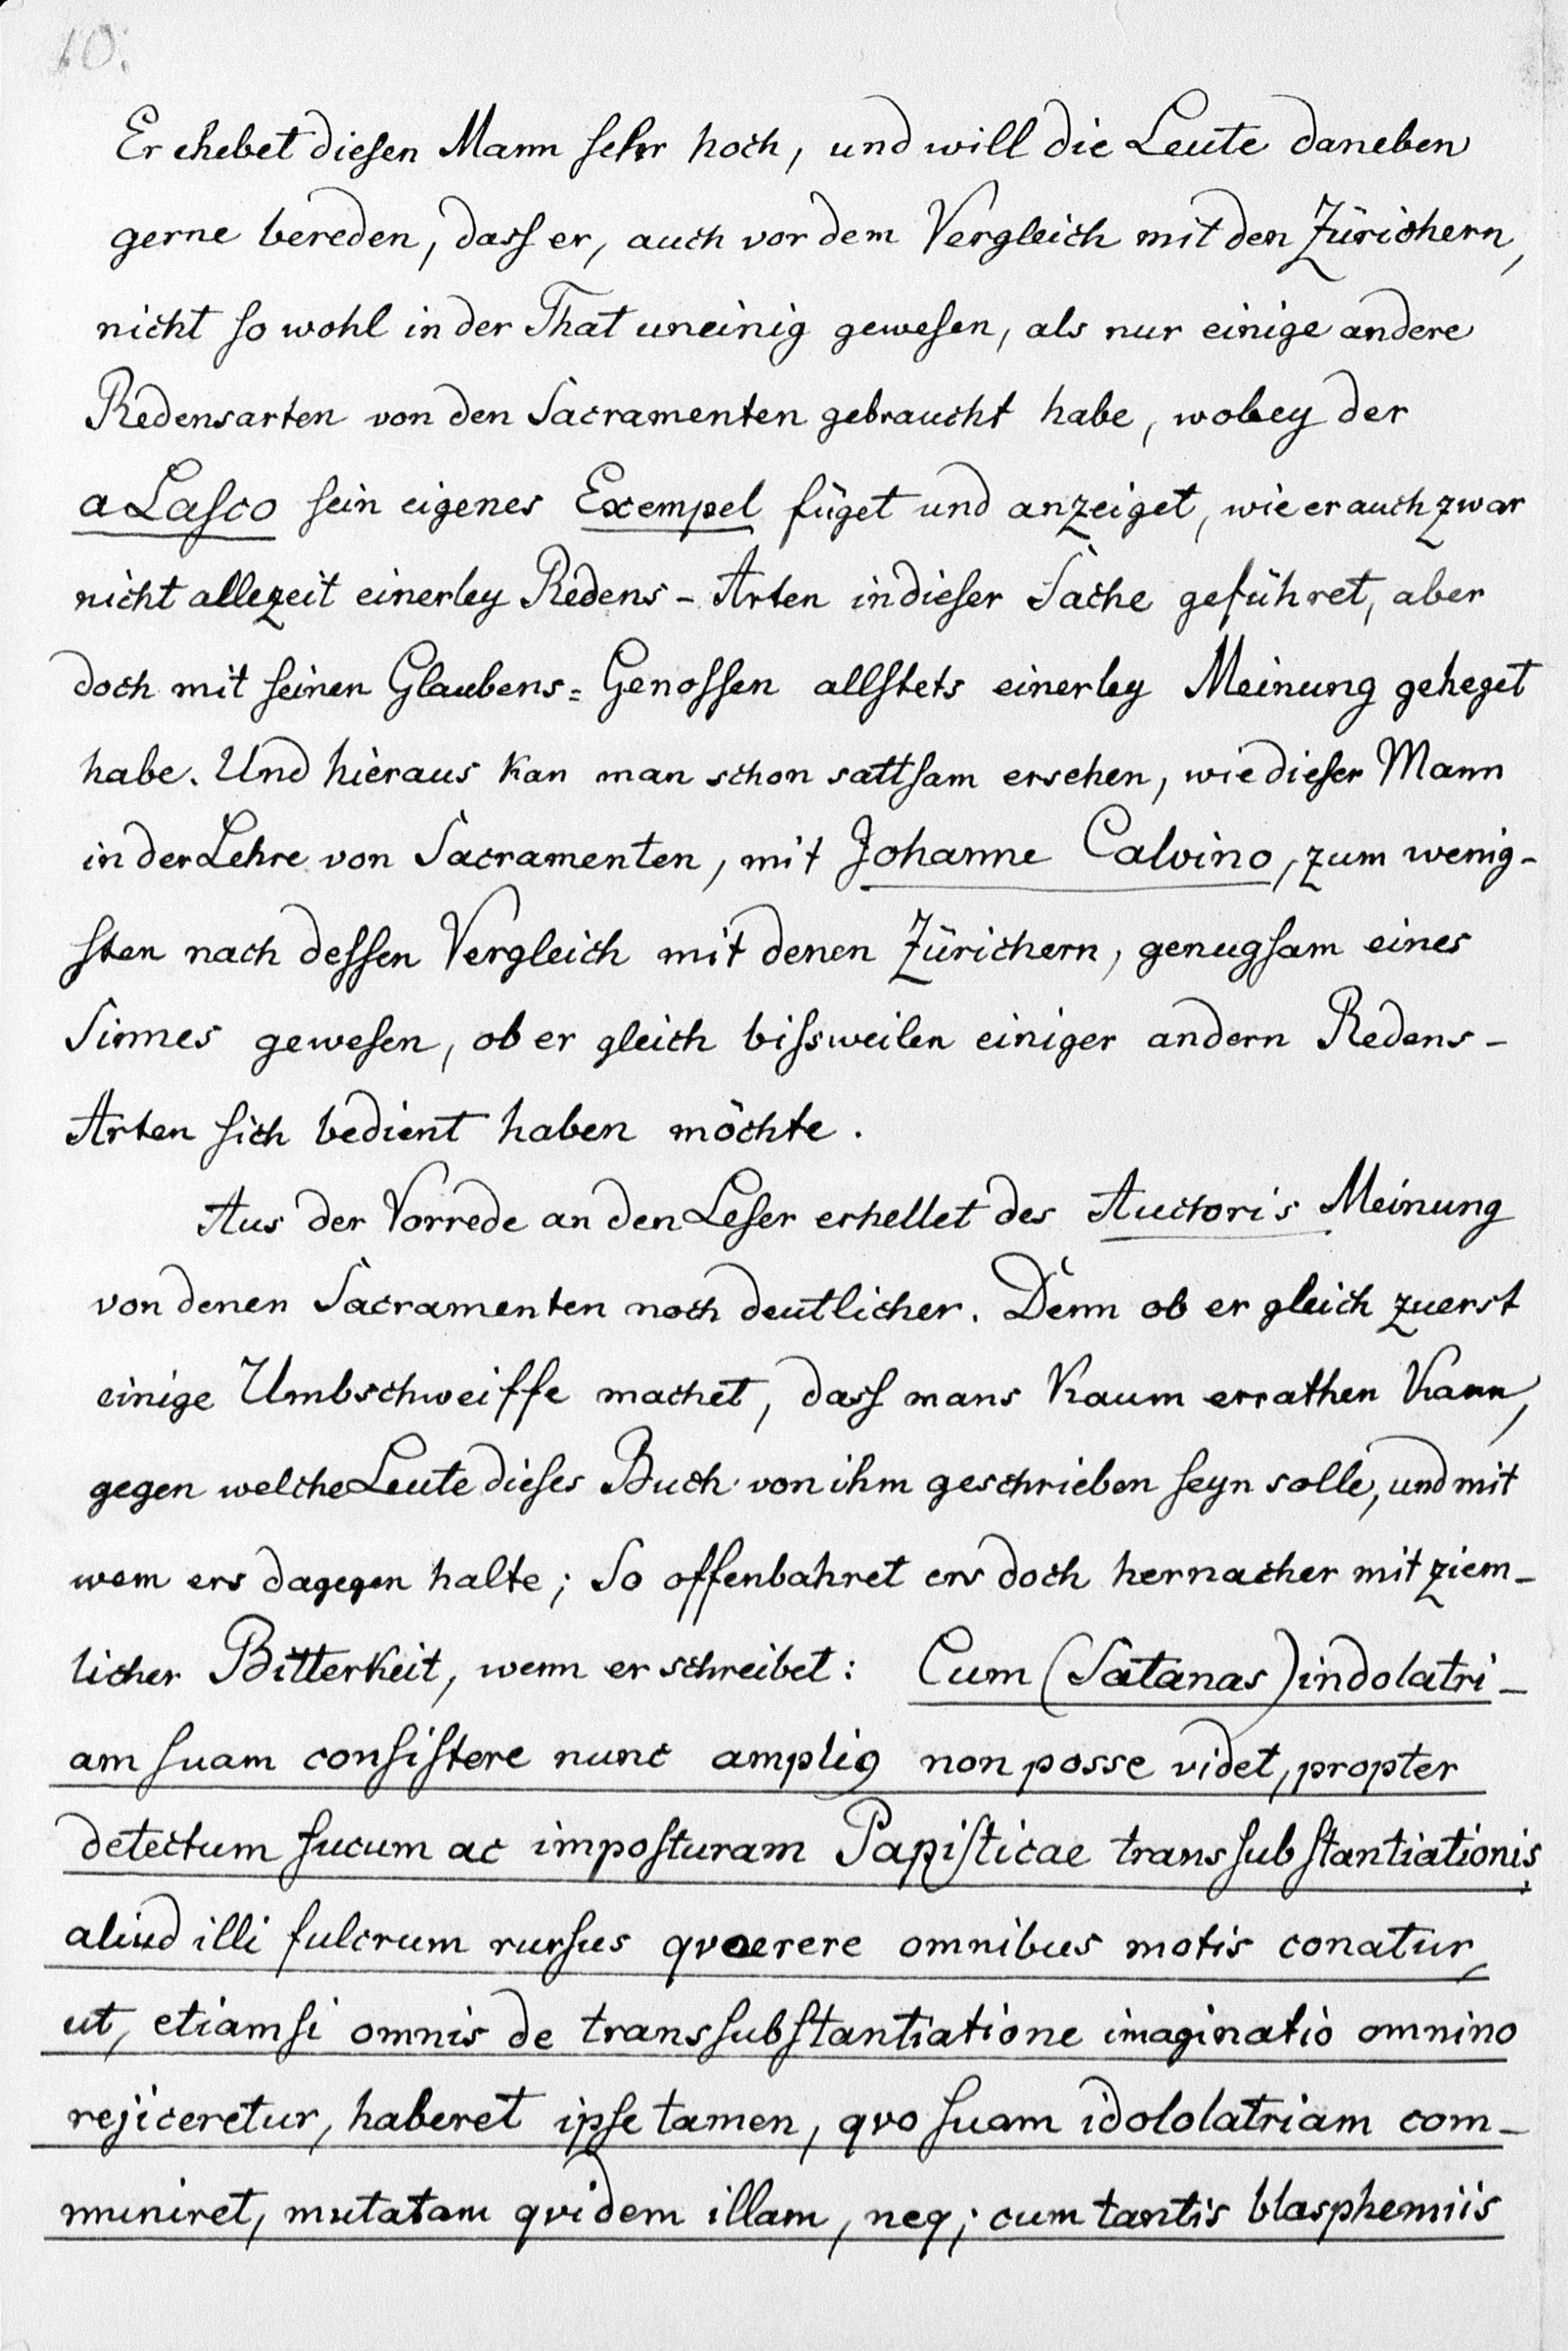 10.
Er ehebet diesen Mann sehr hoch, und will die Leute daneben
gerne bereden, dass er, auch vor dem Vergleich mit den Zürichern,
nicht so wohl in der That uneinig gewesen, als nur einige andere
Redensarten von den Sacramenten gebraucht habe, wobey der
a Lasco sein eigenes Exempel füget und anzeiget, wie er auch zwar
nicht allezeit einerley Redens - Arten in dieser Sache geführet, aber
doch mit seinen Glaubens = Genossen allstets einerley Meinung geheget
habe. Und hieraus kan man schon sattsam ersehen, wie dieser Mann
in der Lehre von Sacramenten, mit Johanne Calvino, zum wenig-
sten nach dessen Vergleich mit denen Zürichern, genugsam eines
Sinnes gewesen, ob er gleich bissweilen einiger andern Redens-
Arten sich bedient haben möchte.
Aus der Vorrede an den Leser erhellet des Auctoris Meinung
von denen Sacramenten noch deutlicher. Denn ob er gleich zuerst
einige Umbschweiffe machet, dass mans Kaum errathen Kann,
gegen welche Leute dieses Buch von ihm geschrieben seyn solle, und mit
wem ers dagegen halte; So offenbahret ers doch hernacher mit ziem-
licher Bitterkeit, wenn er schreibet: Cum (Satanas) indolatri-
am suam consistere nunc ampliꝯ non posse videt, propter
detectum fucum ac imposturam Papisticae transsubstantiationis,
aliud illi fulcrum rursus qvaerere omnibus motis conatur,
ut, etiamsi omnis de transsubstantiatione imaginatio omnino
rejiceretur, haberet ipse tamen, qvo suam idololatriam com-
muniret, mutatam qvidem illam, neq; cum tantis blasphemiis